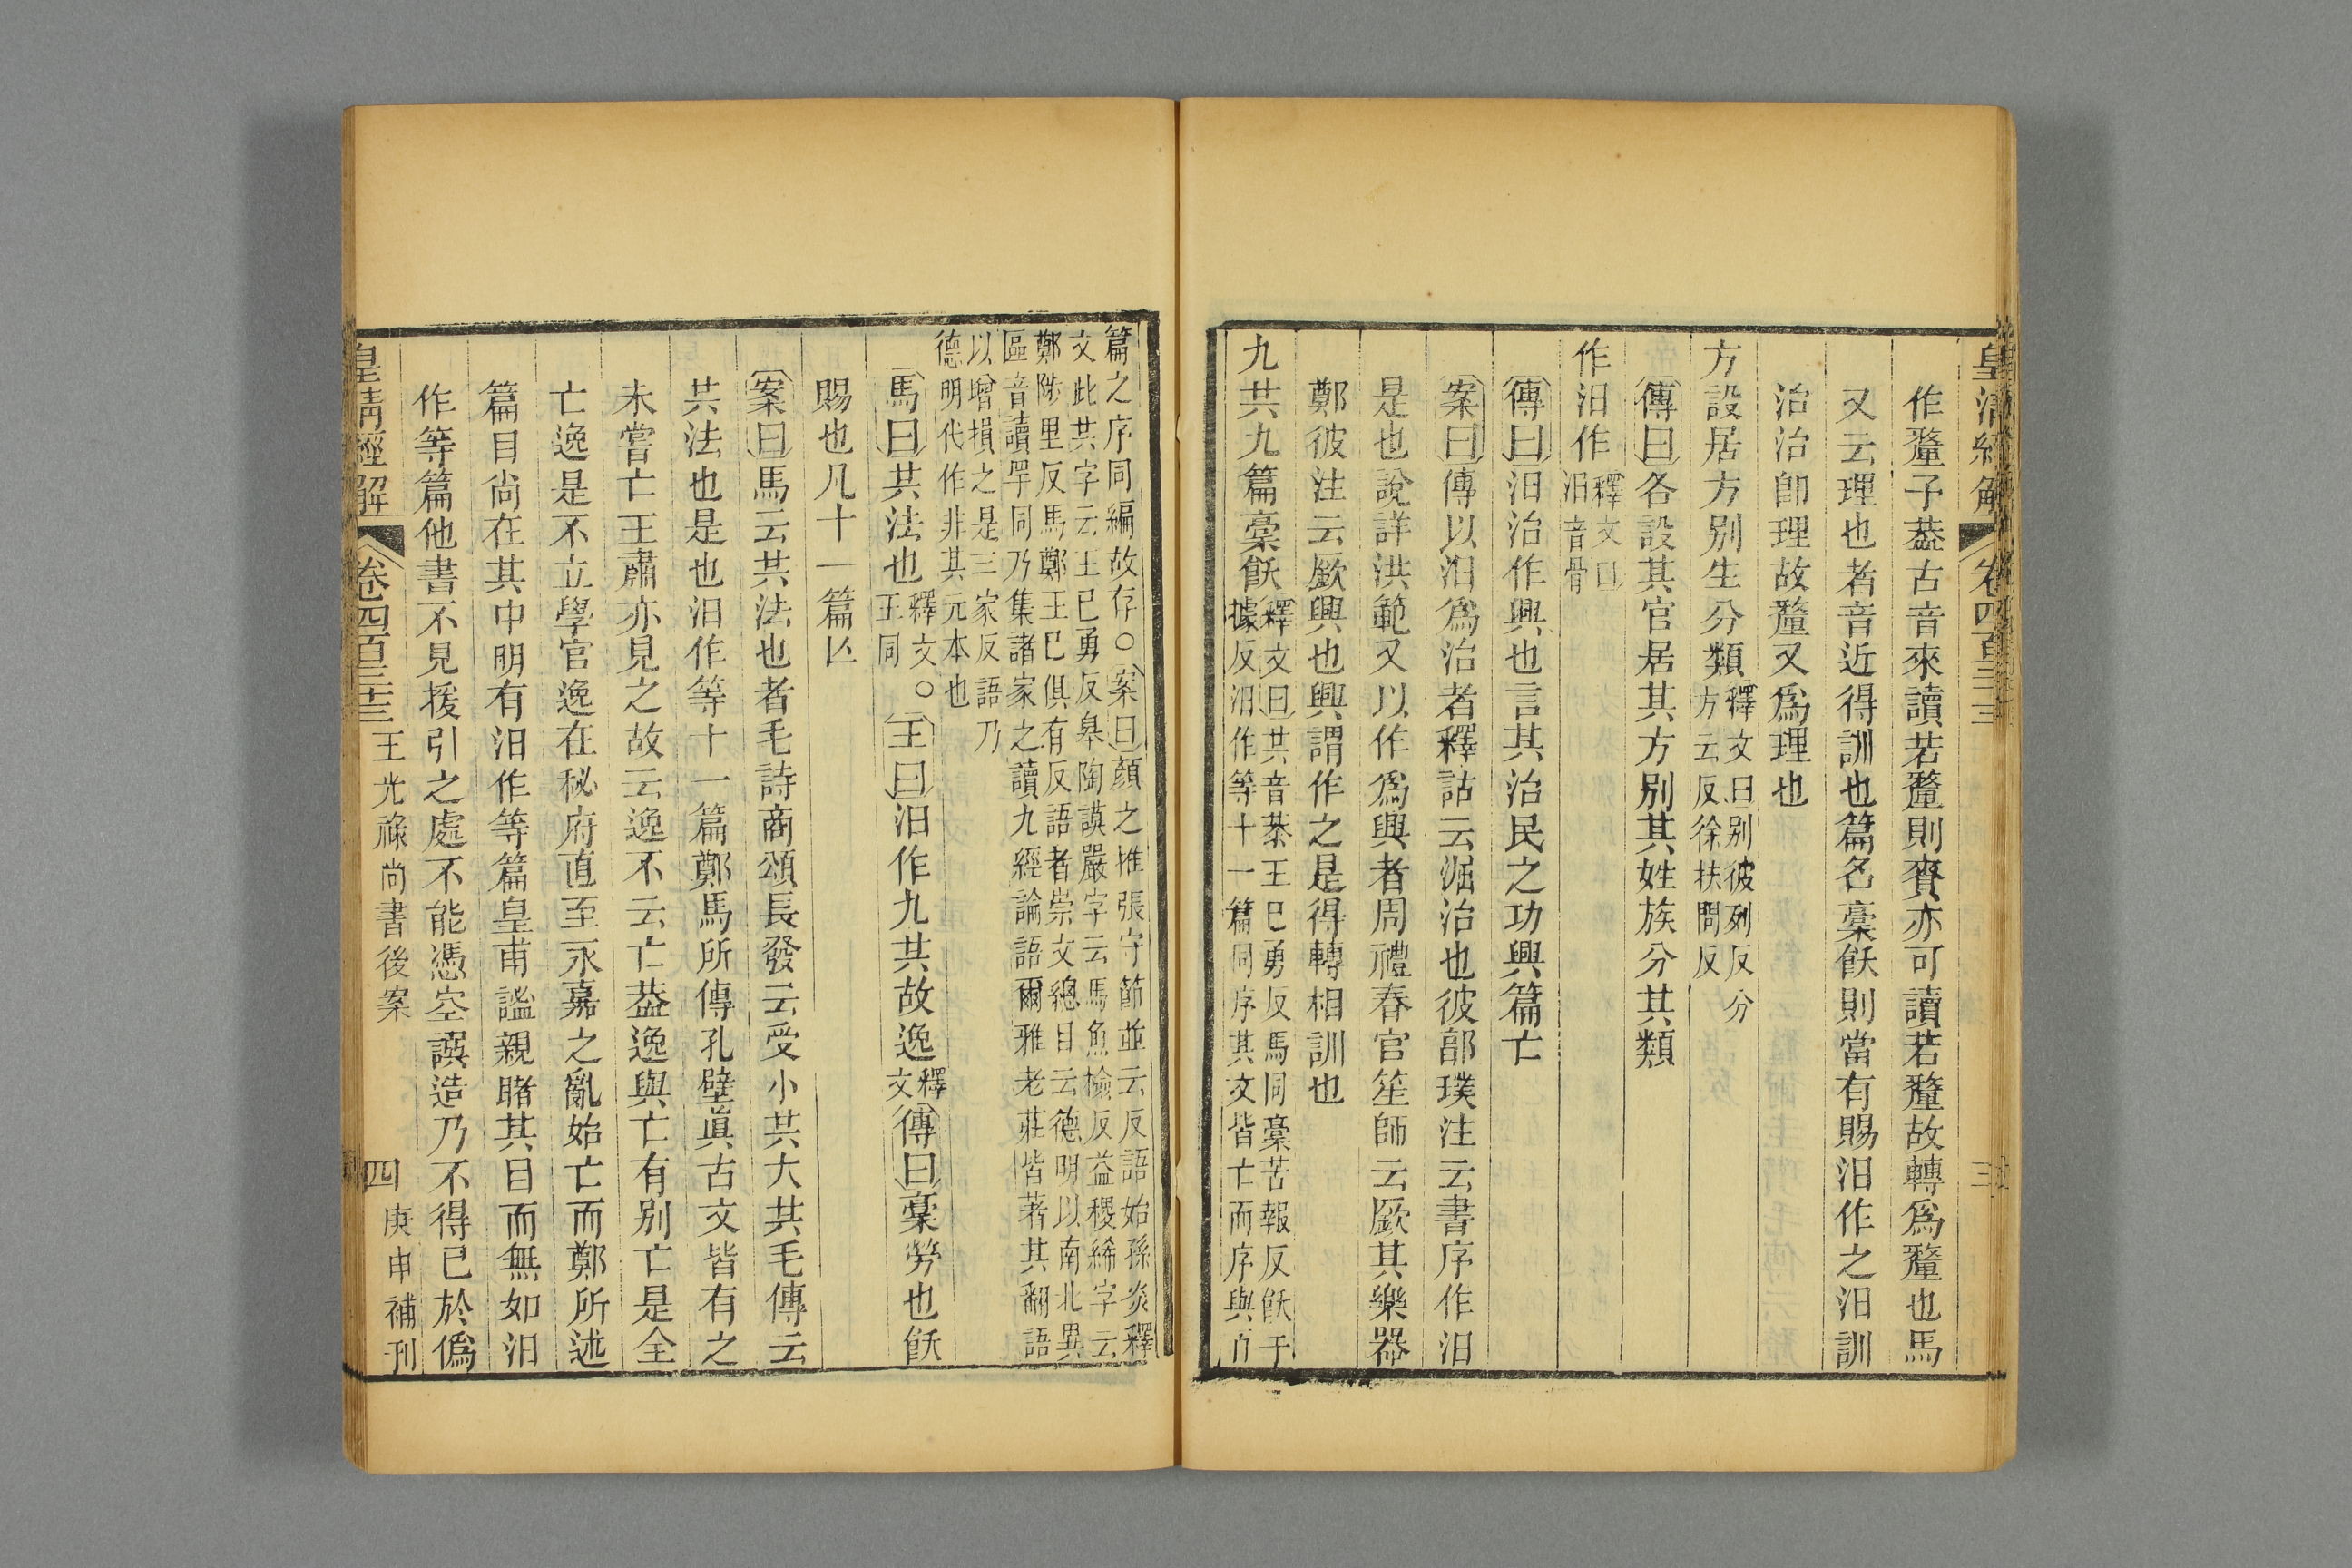 皇清經解 卷四百三十三 三
作釐子葢古音來讀若釐則賚亦可讀若釐故轉爲釐也馬
又云理也者音近得訓也篇名稾飫則當有賜汨作之汨訓
治治卽理故釐又爲理也
方設居方别生分類釋文曰别彼列反分
方云反徐扶問反
傳曰各設其官居其方别其姓族分其類
作汨作釋文曰
汨音骨
傳曰汨治作興也言其治民之功興篇亡
案曰傳以汨爲治者釋詁云淈治也彼郭璞注云書序作汨
是也說詳洪範又以作爲興者周禮春官笙師云廞其樂器
鄭彼注云廞興也興謂作之是得轉相訓也
九共九篇稾飫釋文曰共音恭王已勇反馬同稾苦報反飫于
據反汨作等十一篇同序其文皆亡而序與百
篇之序同編故存○案曰顏之推張守節並云反語始孫炎釋
文此共字云王已勇反皋陶謨嚴字云馬魚檢反益稷絺字云
鄭陟里反馬鄭王已俱有反語者崇文總目云德明以南北異
區音讀罕同乃集諸家之讀九經論語爾雅老莊皆著其翻語
以增損之是三家反語乃
德明代作非其元本也
馬曰共法也釋文○
王同王曰汨作九共故逸釋
文傳曰稾勞也飫
賜也凡十一篇亾
案曰馬云共法也者毛詩商頌長發云受小共大共毛傳云
共法也是也汨作等十一篇鄭馬所傳孔壁眞古文皆有之
未嘗亡王肅亦見之故云逸不云亡葢逸與亡有别亡是全
亡逸是不立學官逸在秘府直至永嘉之亂始亡而鄭所述
篇目尚在其中明有汨作等篇皇甫謐親睹其目而無如汨
作等篇他書不見援引之處不能憑空譔造乃不得已於僞
皇清經解 卷四百三十三 王光祿尚書後案 四 庚申補刊